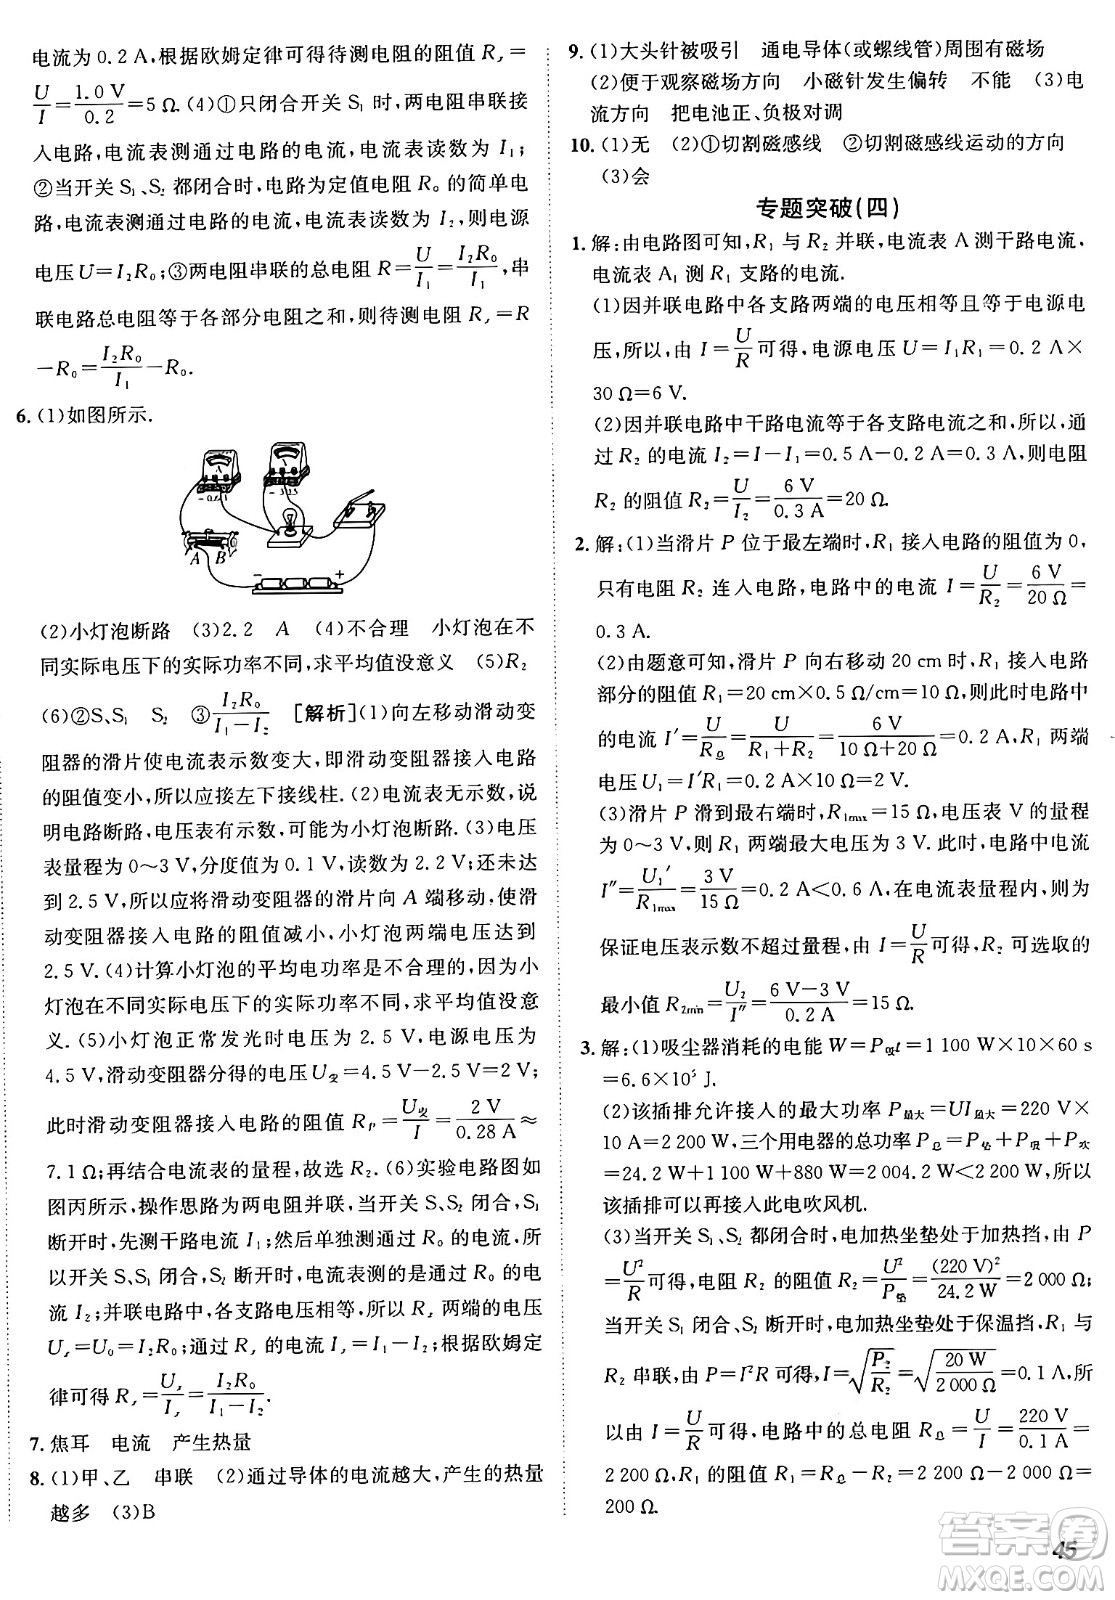 电流为0.2 A,根据欧姆定律可得待测电阻的阻值 Rₓ=
U/I=1.0 V/0.2=5 Ω.(4)①只闭合开关 S₁ 时,两电阻串联接
入电路,电流表测通过电路的电流,电流表读数为 I₁;
②当开关 S₁、S₂ 都闭合时,电路为定值电阻 R₀ 的简单电
路,电流表测通过电路的电流,电流表读数为 I₂,则电源
电压 U=I₂R₀;③两电阻串联的总电阻 R=U/I₁=I₂R₀/I₁,串
联电路总电阻等于各部分电阻之和,则待测电阻 Rₓ=R
-R₀=I₂R₀/I₁-R₀.
6.(1)如图所示.
A
-0.6 3
- 3 15
A B
- +
(2)小灯泡断路 (3)2.2 A (4)不合理 小灯泡在不
同实际电压下的实际功率不同,求平均值没意义 (5)R₂
(6)②S、S₁ S₂ ③I₂R₀/(I₁-I₂) [解析](1)向左移动滑动变
阻器的滑片使电流表示数变大,即滑动变阻器接入电路
的阻值变小,所以应接左下接线柱.(2)电流表无示数,说
明电路断路,电压表有示数,可能为小灯泡断路.(3)电压
表量程为0～3 V,分度值为0.1 V,读数为2.2 V;还未达
到2.5 V,所以应将滑动变阻器的滑片向 A 端移动,使滑
动变阻器接入电路的阻值减小,小灯泡两端电压达到
2.5 V.(4)计算小灯泡的平均电功率是不合理的,因为小
灯泡在不同实际电压下的实际功率不同,求平均值没意
义.(5)小灯泡正常发光时电压为2.5 V,电源电压为
4.5 V,滑动变阻器分得的电压U变=4.5 V-2.5 V=2 V;
此时滑动变阻器接入电路的阻值 Rₚ=U变/I=2 V/0.28 A≈
7.1 Ω;再结合电流表的量程,故选 R₂.(6)实验电路图如
图丙所示,操作思路为两电阻并联,当开关 S、S₂ 闭合,S₁
断开时,先测干路电流 I₁;然后单独测通过 R₀ 的电流,所
以开关 S、S₁ 闭合,S₂ 断开时,电流表测的是通过 R₀ 的电
流 I₂;并联电路中,各支路电压相等,所以 Rₓ 两端的电压
Uₓ=U₀=I₂R₀;通过 Rₓ 的电流 Iₓ=I₁-I₂;根据欧姆定
律可得 Rₓ=Uₓ/Iₓ=I₂R₀/(I₁-I₂).
7.焦耳 电流 产生热量
8.(1)甲、乙 串联 (2)通过导体的电流越大,产生的热量
越多 (3)B
9.(1)大头针被吸引 通电导体(或螺线管)周围有磁场
(2)便于观察磁场方向 小磁针发生偏转 不能 (3)电
流方向 把电池正、负极对调
10.(1)无 (2)①切割磁感线 ②切割磁感线运动的方向
(3)会
专题突破(四)
1.解:由电路图可知,R₁ 与 R₂ 并联,电流表 A 测干路电流,
电流表 A₁ 测 R₁ 支路的电流.
(1)因并联电路中各支路两端的电压相等且等于电源电
压,所以,由 I=U/R可得,电源电压 U=I₁R₁=0.2 A×
30 Ω=6 V.
(2)因并联电路中干路电流等于各支路电流之和,所以,通
过 R₂ 的电流 I₂=I-I₁=0.5 A-0.2 A=0.3 A,则电阻
R₂ 的阻值 R₂=U/I₂=6 V/0.3 A=20 Ω.
2.解:(1)当滑片 P 位于最左端时,R₁ 接入电路的阻值为0,
只有电阻 R₂ 连入电路,电路中的电流 I=U/R₂=6 V/20 Ω=
0.3 A.
(2)由题意可知,滑片 P 向右移动20 cm时,R₁ 接入电路
部分的阻值 R₁=20 cm×0.5 Ω/cm=10 Ω,则此时电路中
的电流 I′=U/R总=U/(R₁+R₂)=6 V/(10 Ω+20 Ω)=0.2 A,R₁ 两端
电压 U₁=I′R₁=0.2 A×10 Ω=2 V.
(3)滑片 P 滑到最右端时,R₁max=15 Ω,电压表 V 的量程
为0～3 V,则 R₁ 两端最大电压为 3 V.此时,电路中电流
I″=U₁′/R₁max=3 V/15 Ω=0.2 A<0.6 A,在电流表量程内,则为
保证电压表示数不超过量程,由 I=U/R可得,R₂ 可选取的
最小值 R₂min=U₂/I″=(6 V-3 V)/0.2 A=15 Ω.
3.解:(1)吸尘器消耗的电能 W=P吸t=1 100 W×10×60 s
=6.6×10⁵ J.
(2)该插排允许接入的最大功率 P最大=UI最大=220 V×
10 A=2 200 W,三个用电器的总功率 P总=P垫+P吸+P衣
=24.2 W+1 100 W+880 W=2 004.2 W<2 200 W,所以
该插排可以再接入此电吹风机.
(3)当开关 S₁、S₂ 都闭合时,电加热坐垫处于加热挡,由 P
=U²/R可得,电阻 R₂ 的阻值 R₂=U²/P垫=(220 V)²/24.2 W=2 000 Ω;
当开关 S₁ 闭合、S₂ 断开时,电加热坐垫处于保温挡,R₁ 与
R₂ 串联,由 P=I²R 可得,I=√(P₂/R₂)=√(20 W/2 000 Ω)=0.1 A,所
以由 I=U/R可得,电路中的总电阻 R总=U/I=220 V/0.1 A=
2 200 Ω,则电阻 R₁=R总-R₂=2 200 Ω-2 000 Ω=
200 Ω.
45
答案圈
MXQE.COM